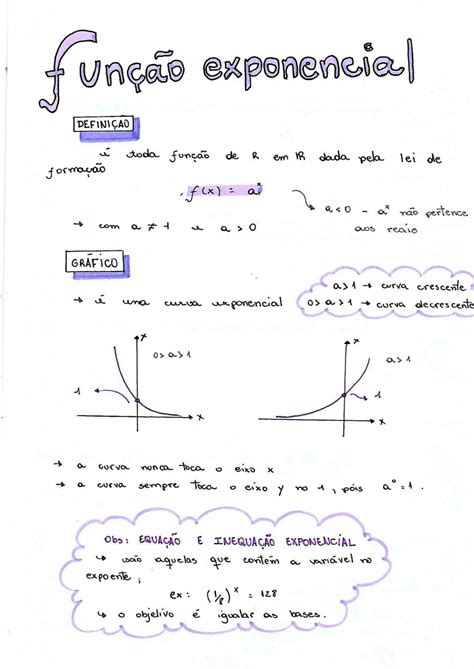 função exponencial
DEFINIÇÃO
é toda função de R em IR dada pela lei de
formação
f(x) = aˣ
a<0 - aˣ não pertence
aos reais
→ com a ≠ 1 e a > 0
GRÁFICO
→ é uma curva exponencial
a>1 → curva crescente
0>a>1 → curva decrescente
x
0>a>1
1
x
x
a>1
1
x
→ a curva nunca toca o eixo x
→ a curva sempre toca o eixo y no 1, pois a⁰=1.
Obs: EQUAÇÃO E INEQUAÇÃO EXPONENCIAL
↳ são aquelas que contém a variável no
expoente;
ex: (1/8)ˣ = 128
↳ o objetivo é igualar as bases.